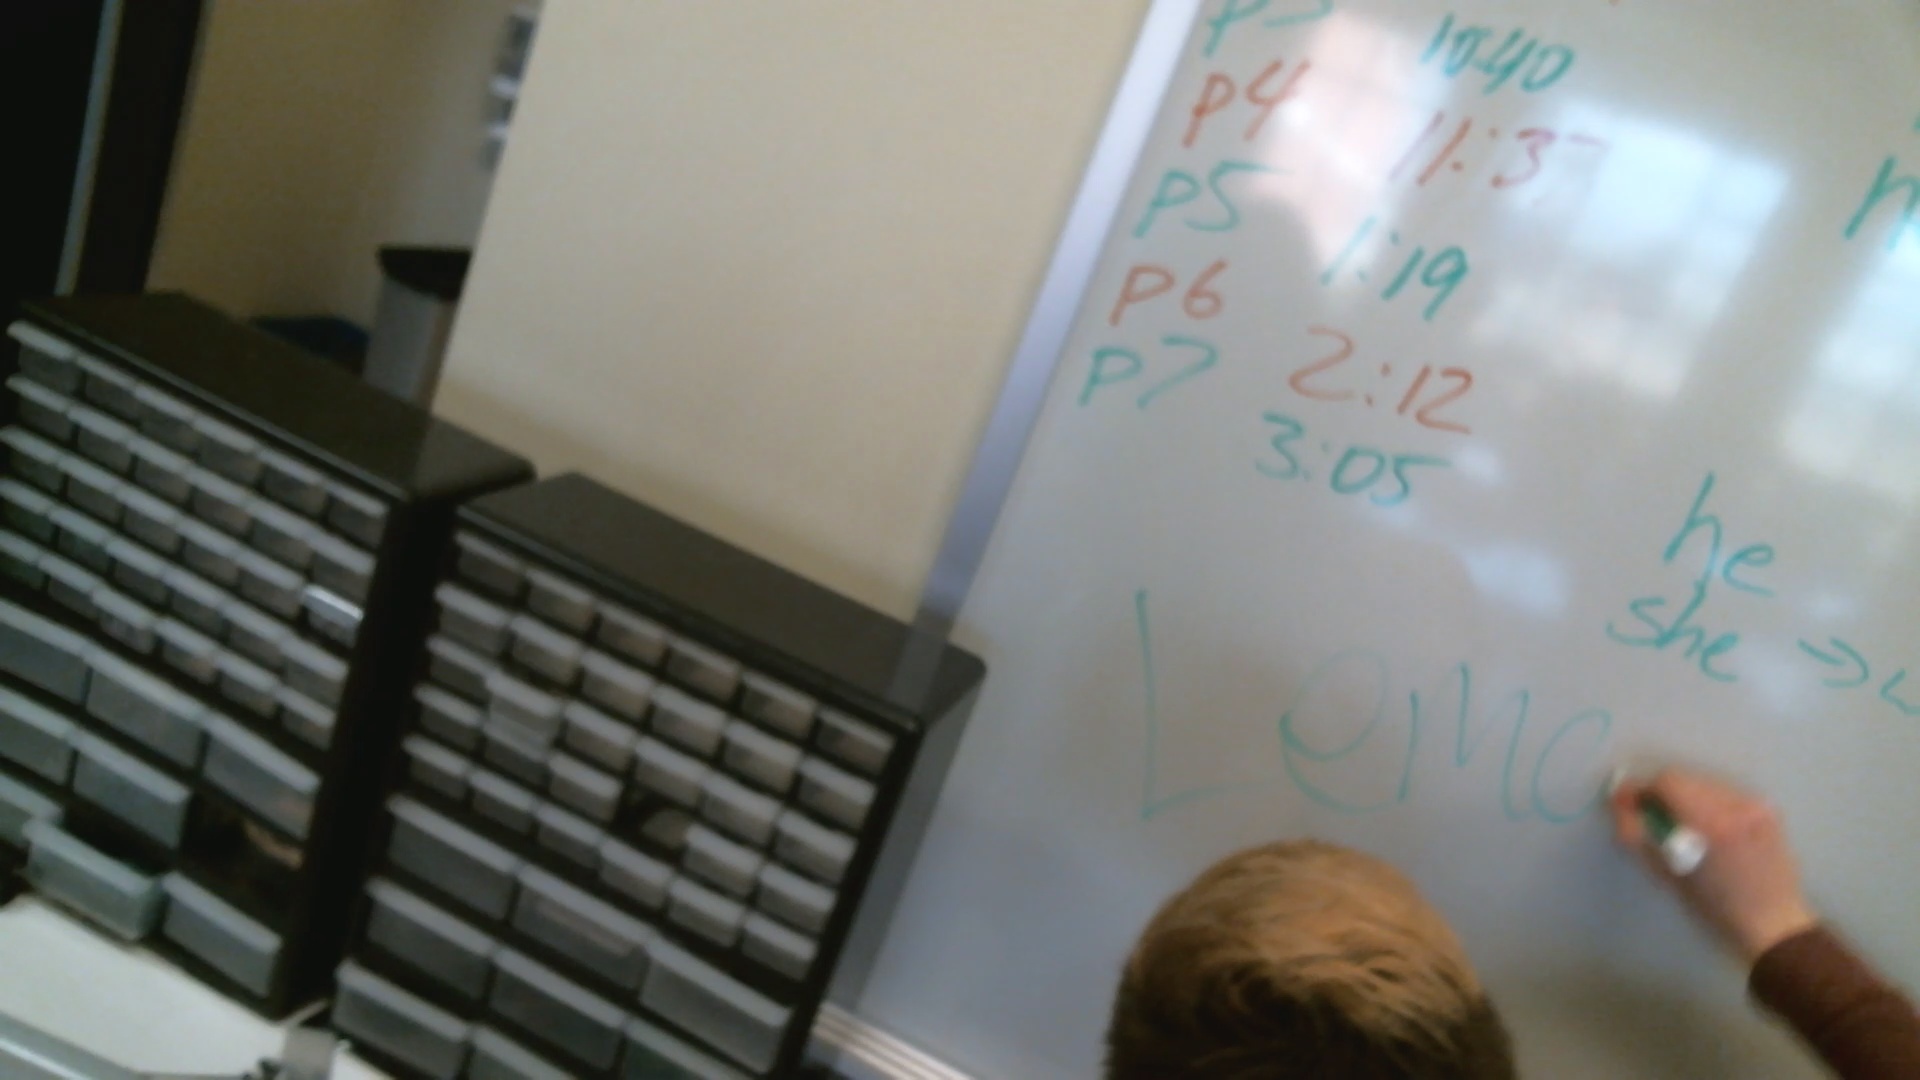 p4 10:40
p5 11:3
p6 1:19
p7 2:12
3:05
he
she →
Lemo